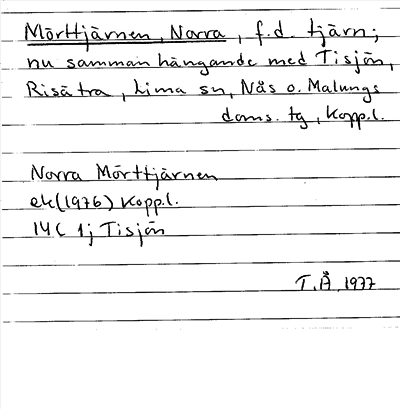 Mörttjärnen, Norra, f.d. tjärn;
nu sammanhängande med Tisjön,
Risätra, Lima sn, Nås o. Malungs
doms. tg, Kopp.l.
Norra Mörttjärnen
ek (1976) Kopp.l.
14C 1j Tisjön
T.Å. 1977